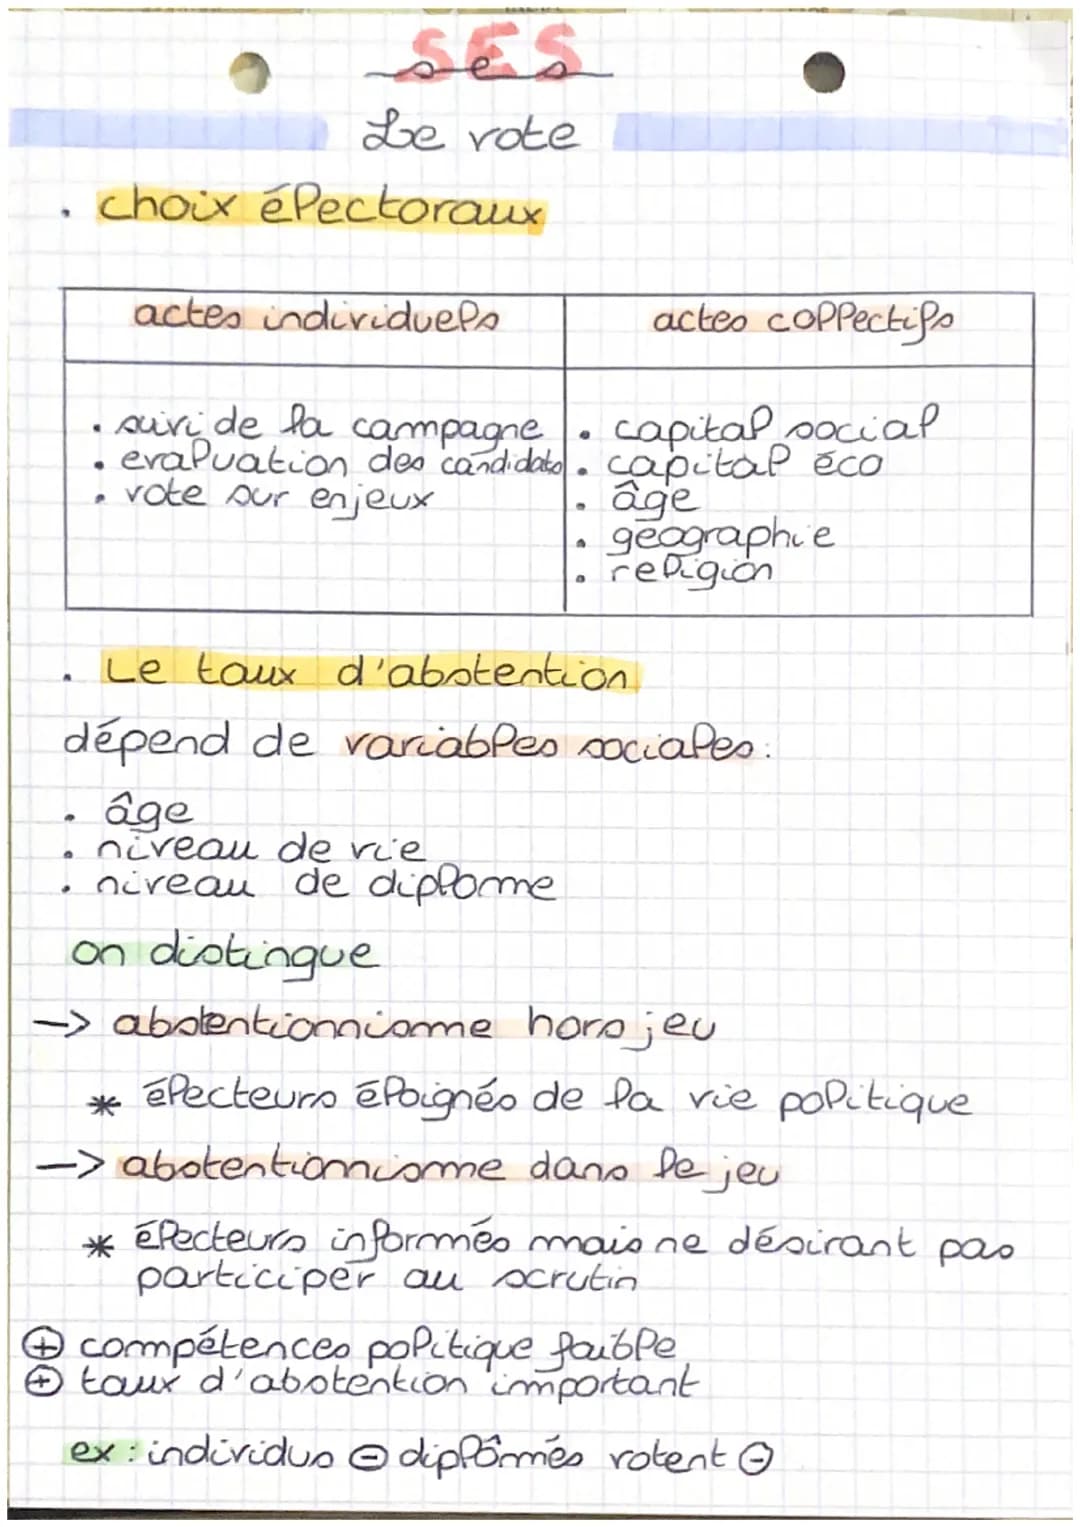 SES
ses
Le vote
. choix électoraux
actes individuels
actes collectifs
. suivi de la campagne
. evaluation des candidats
. vote sur enjeux
. capital social
. capital éco
. âge
. géographie
. religion
. Le taux d'abstention
dépend de variables sociales :
. âge
. niveau de vie
. niveau de diplome
on distingue
-> abstentionnisme hors jeu
* électeurs éloignés de la vie politique
-> abstentionnisme dans le jeu
* électeurs informés mais ne désirant pas
participer au scrutin
⊕ compétences politique faible
⊕ taux d'abstention important
ex : individus ⊖ diplômés votent ⊖